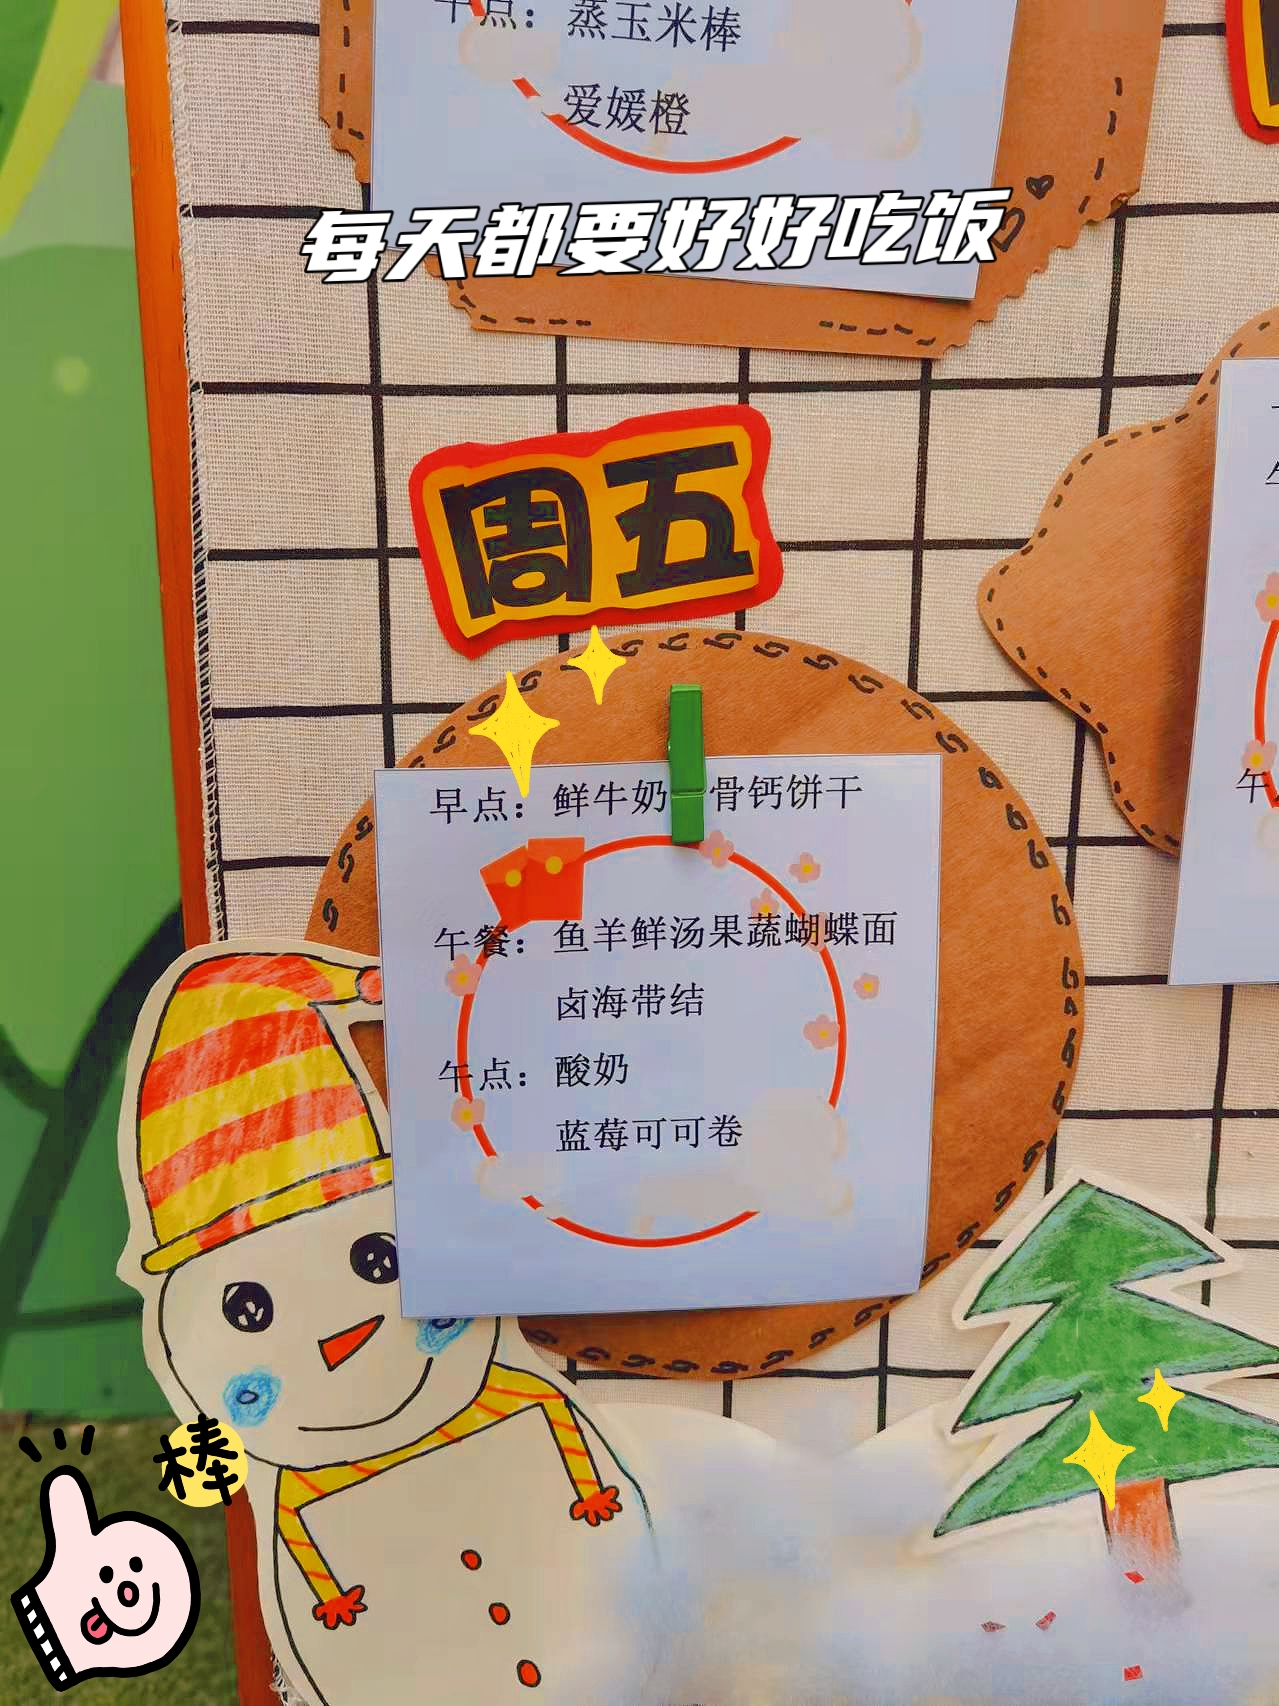 午点：蒸玉米棒
爱媛橙
每天都要好好吃饭
周五
早点：鲜牛奶 骨钙饼干
午餐：鱼羊鲜汤果蔬蝴蝶面
卤海带结
午点：酸奶
蓝莓可可卷
棒